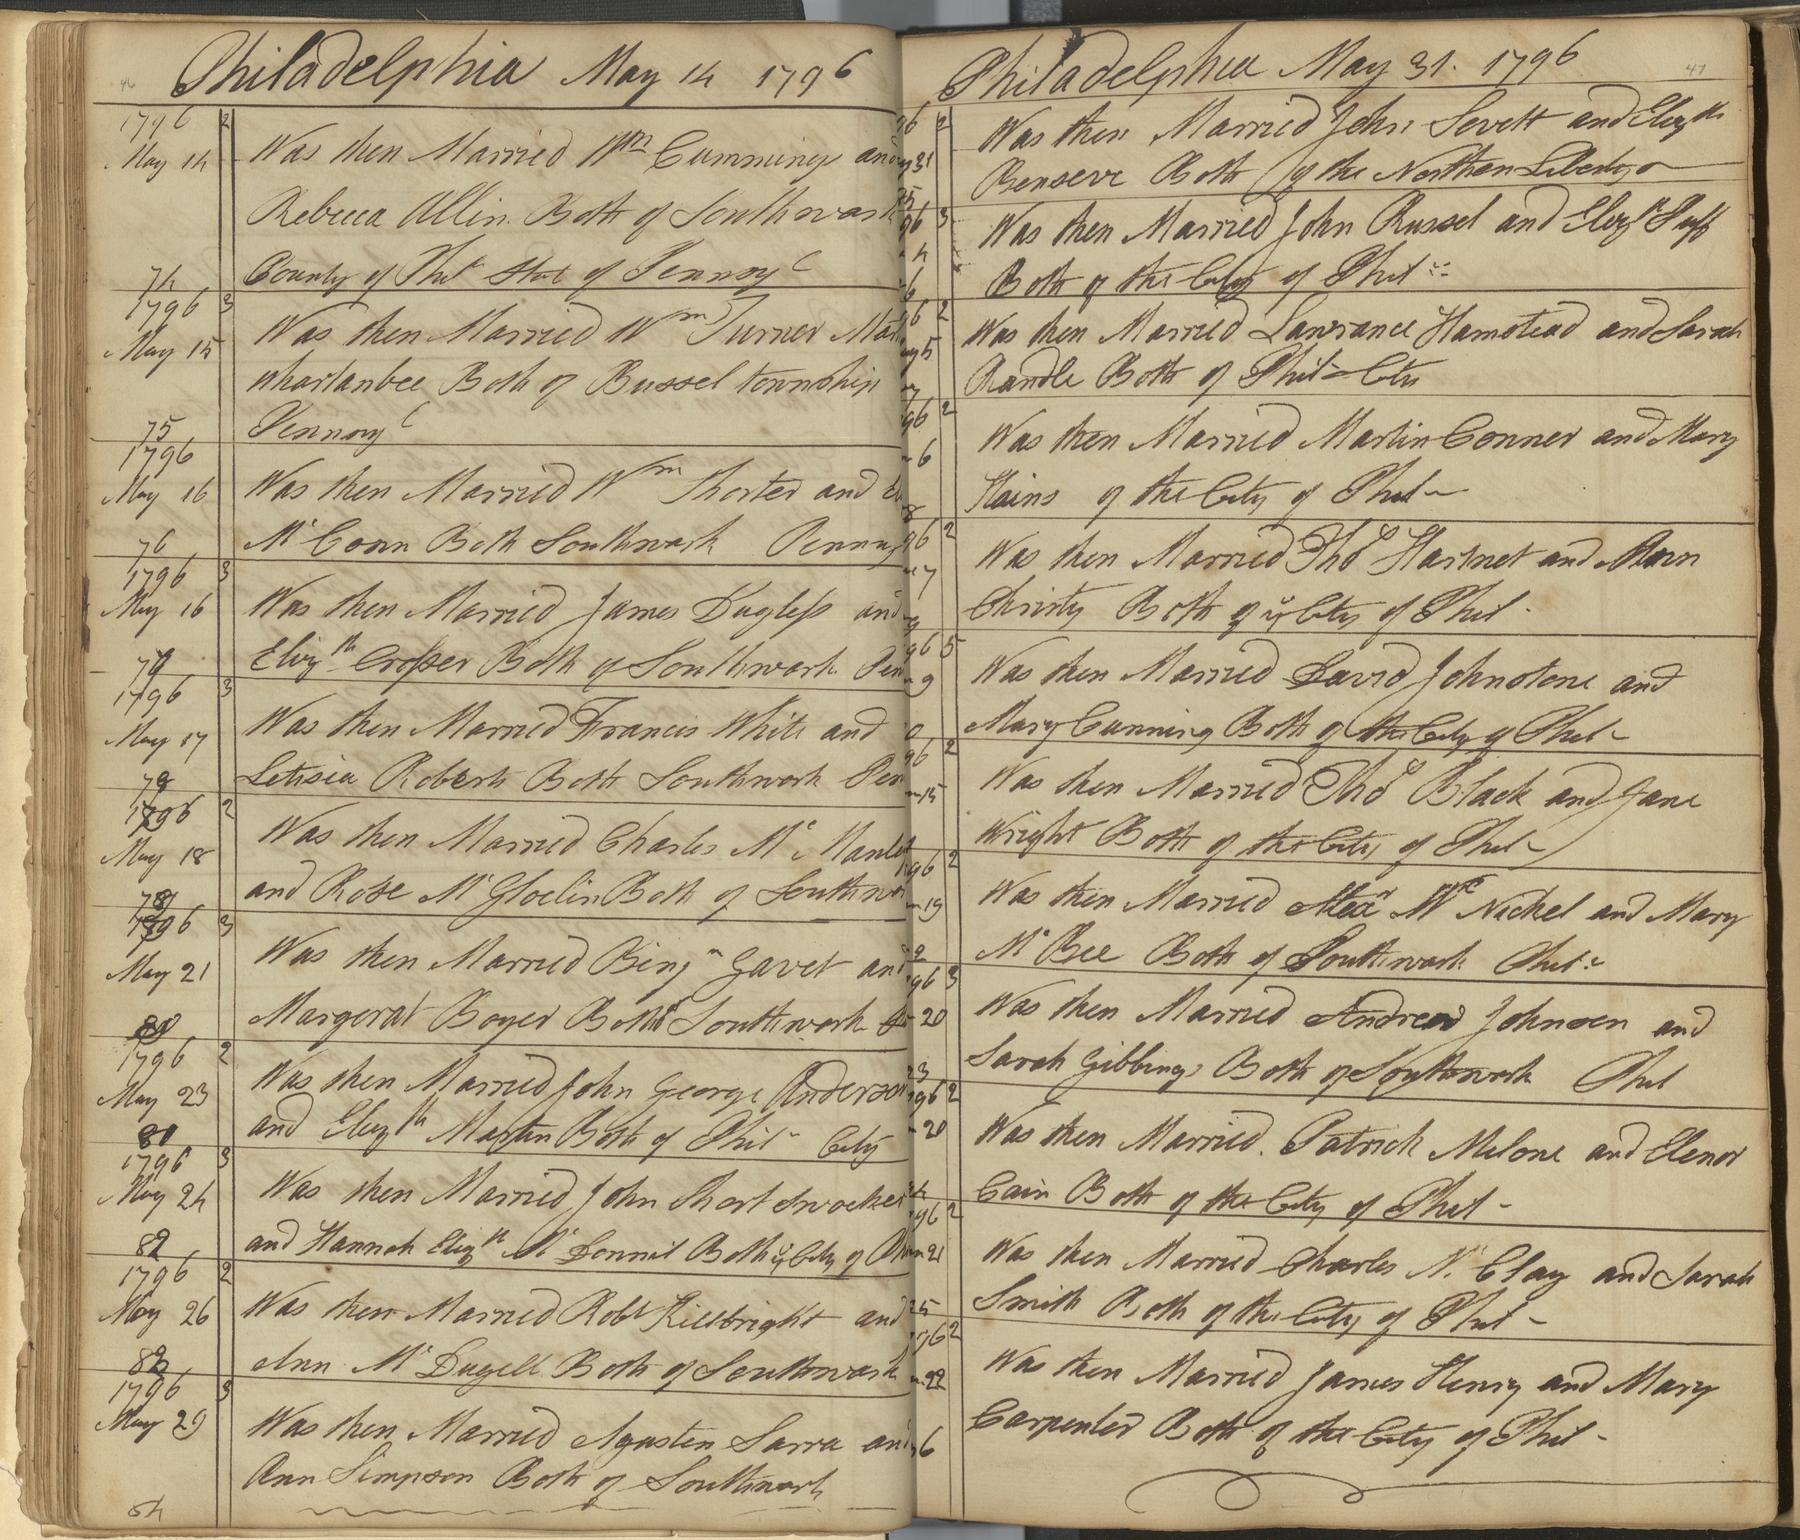 46
Philadelphia May 14 1796
1796 2
May 14 Was then Married Wm Cummings and
Rebecca Allin Both of Southwark
74 County of Phil State of Pennsy
1796 3
May 15 Was then Married Wm Turner
Both of Bussel township
75 Pennsy
1796
May 16 Was then Married Wm Shorter and
76 Mc Conn Both Southwark Pennsy
1796 3
May 16 Was then Married James Dugless and
Elizth Crosser Both of Southwark
1796 3
May 17 Was then Married Francis White and
Letisia Roberts Both Southwark
1796 2
May 18 Was then Married Charles Mc
and Rose Mc Gloelin Both of Southwark
1796 3
May 21 Was then Married Binjn Gavet and
Margerat Boyer Both Southwark
1796 2
May 23 Was then Married John George Anderson
and Elizth Martin Both of Phil City
1796 3
May 24 Was then Married John Short
and Hannah Elizth Mc Donnil Both ye City of
1796 2
May 26 Was then Married Robt Killbright and
Ann Mc Dugell Both of Southwark
1796 3
May 29 Was then Married Agusten Sarra and
Ann Simpson Both of Southwark
84
47
Philadelphia May 31. 1796
96 2
31 Was then Married John Sevett and Elizth
Benseve Both of the Northen Libertys
96 3
Was then Married John Russel and Elizth
Both of the City of Phil
2
5 Was then Married Lawrance Hamstead and Sarah
Randle Both of Phil City
96 2
6 Was then Married Martin Conner and Mary
Hains of the City of Phil
96 2
7 Was then Married Tho Hartnet and Ann
Christy Both of ye City of Phil
96 5
9 Was then Married David Johnstone and
Mary Cunning Both of the City of Phil
96 2
15 Was then Married Tho Black and Jane
Wright Both of the City of Phil
96 2
19 Was then Married Alexr Mc Nickel and Mary
Mc Bee Both of Southwark Phil
96 3
20 Was then Married Andrew Johnson and
Sarah Gibbings Both of Southwark Phil
96 2
20 Was then Married Patrick Melone and Elenor
Cain Both of the City of Phil
96 2
21 Was then Married Charles Mc Clay and Sarah
Smith Both of the City of Phil
96 2
22 Was then Married James Henry and Mary
Carpenter Both of the City of Phil